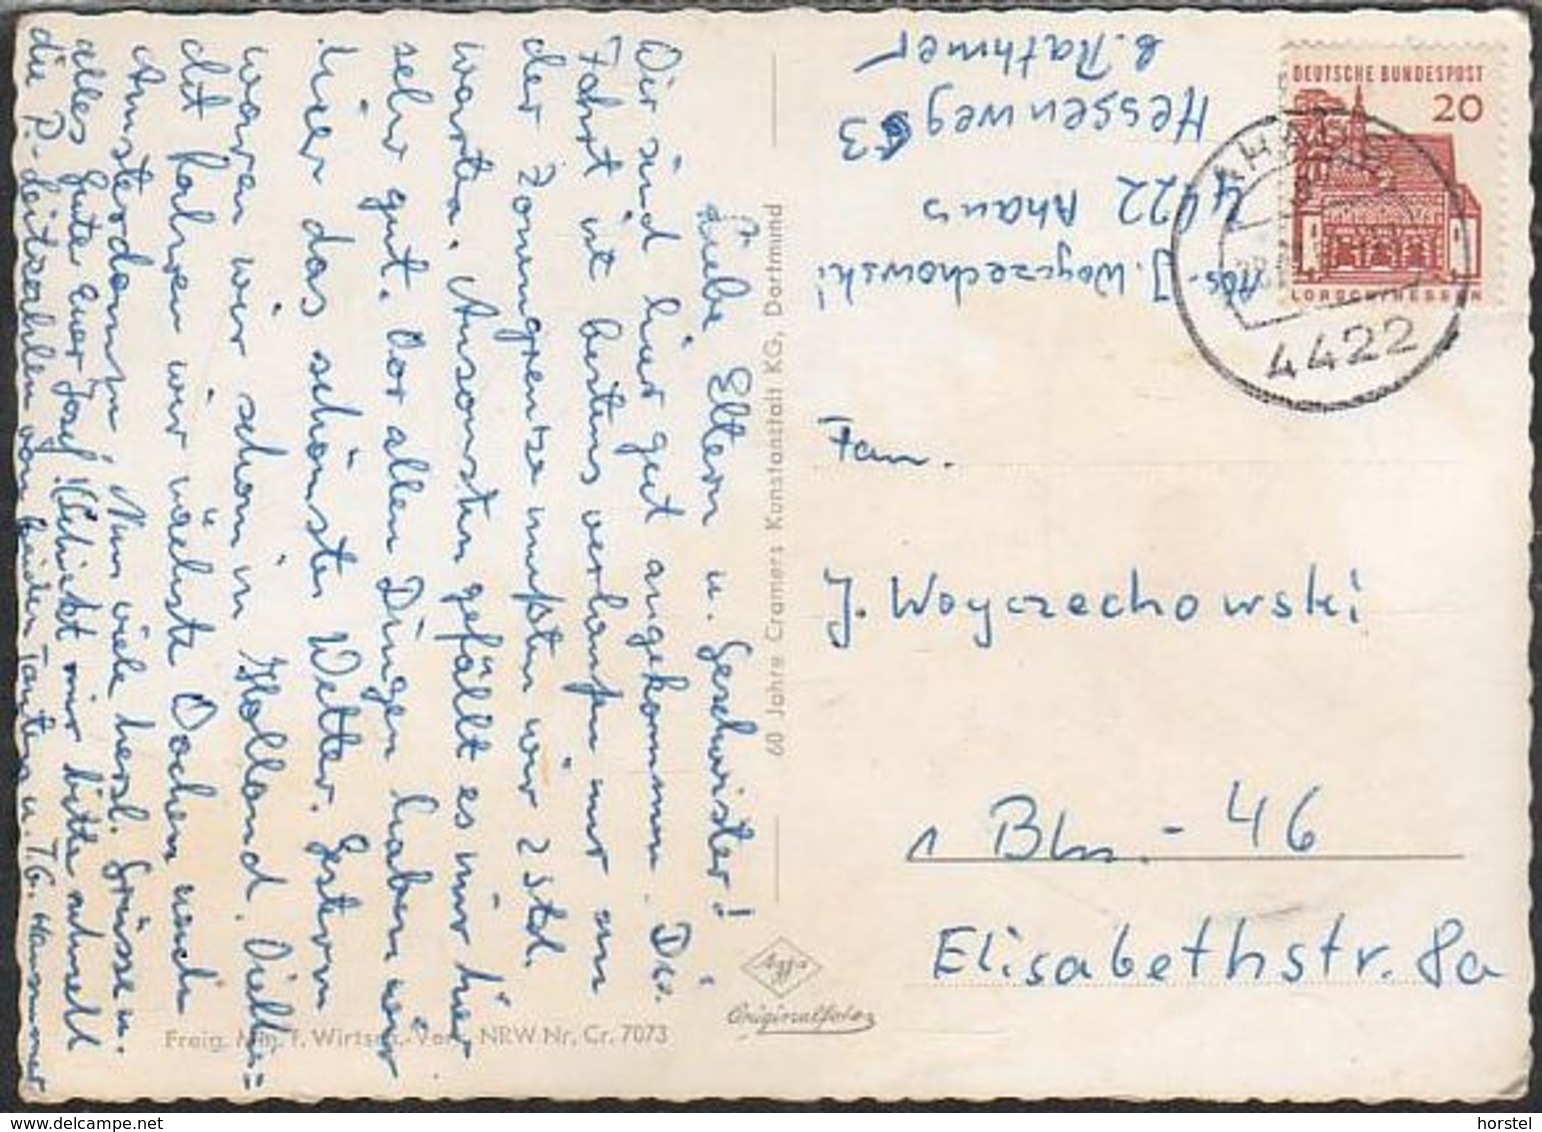 Liebe Eltern u. Geschwister!
Wir sind hier gut angekommen. Die
Fahrt ist bestens verlaufen nur an
der Zonengrenze mußten wir 2 Std.
warten. Ansonsten gefällt es mir hier
sehr gut. Vor allen Dingen haben wir
hier das schönste Wetter. Gestern
waren wir schon in Holland. Viellei=
cht fahren wir nächste Wochen nach
Amsterdam. Nun viele herzl. Grüsse u.
alles Gute Euer Josef. Schickt mir bitte schnell
die P.-leitzahlen von beiden Tanten u. T.G. Hammer
60 Jahre Cramers Kunstanstalt KG, Dortmund
Freig. Min. f. Wirtsch. Verk. NRW Nr. Cr. 7073
Agfa
Originalfoto
Abs. J. Woyczechowski
4422 Ahaus
Hessenweg 53
b. Rathmer
DEUTSCHE BUNDESPOST
20
LORSCH/HESSEN
AHAUS
4422
Fam.
J. Woyczechowski
1 Bln. - 46
Elisabethstr. 8a
horstel